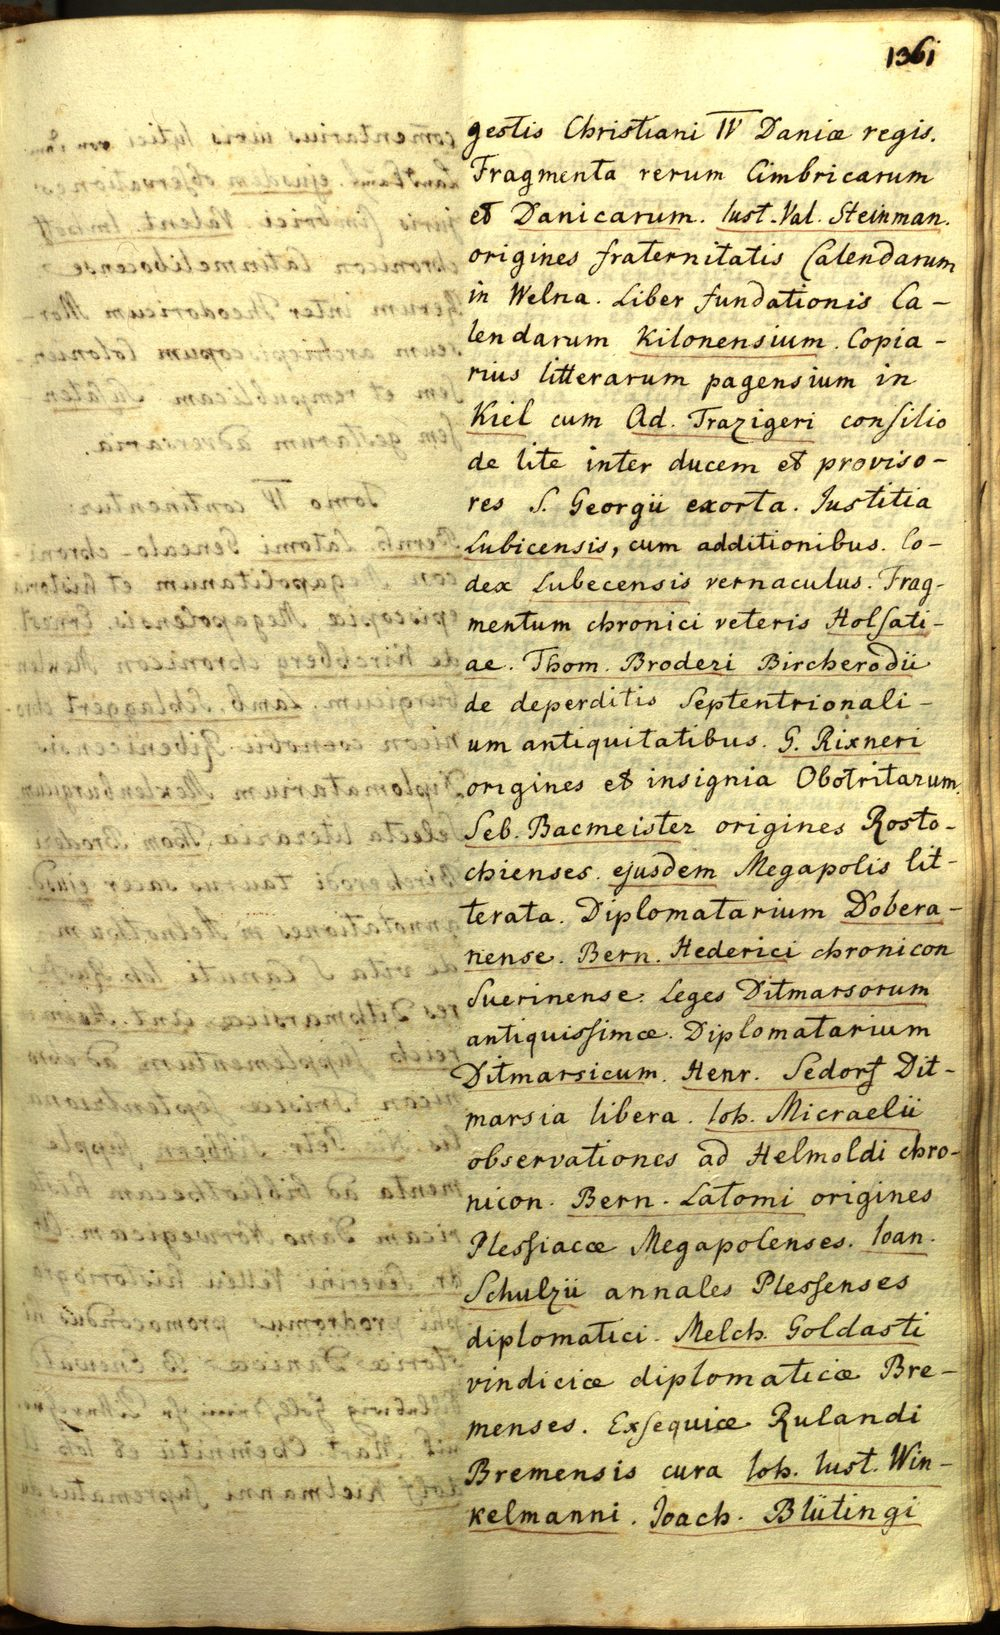 1361
gestis Christiani IV Daniæ regis.
Fragmenta rerum Cimbricarum
et Danicarum. Iust. Val. Steinman.
origines fraternitatis Calendarum
in Welna. Liber fundationis Ca-
lendarum Kilonensium. Copia-
rius litterarum pagensium in
Kiel cum Ad. Trazigeri consilio
de lite inter ducem et proviso-
res S. Georgii exorta. Iustitia
Lubicensis, cum additionibus. Co-
dex Lubecensis vernaculus. Frag-
mentum chronici veteris Holsati-
ae. Thom. Broderi Bircherodii
de deperditis Septentrionali-
um antiquitatibus. G. Rixneri
origines et insignia Obotritarum.
Seb. Bacmeister origines Rosto-
chienses. ejusdem Megapolis lit-
terata. Diplomatarium Dobera-
nense. Bern. Hederici chronicon
Suerinense. Leges Ditmarsorum
antiquissimæ. Diplomatarium
Ditmarsicum. Henr. Sedorf Dit-
marsia libera. Ioh. Micraelii
observationes ad Helmoldi chro-
nicon. Bern. Latomi origines
Plessiacæ Megapolenses. Ioan.
Schulzii annales Plessenses
diplomatici. Melch. Goldasti
vindiciæ diplomaticæ Bre-
menses. Exsequiæ Rulandi
Bremensis cura Ioh. Iust. Win-
kelmanni. Joach. Blütingi